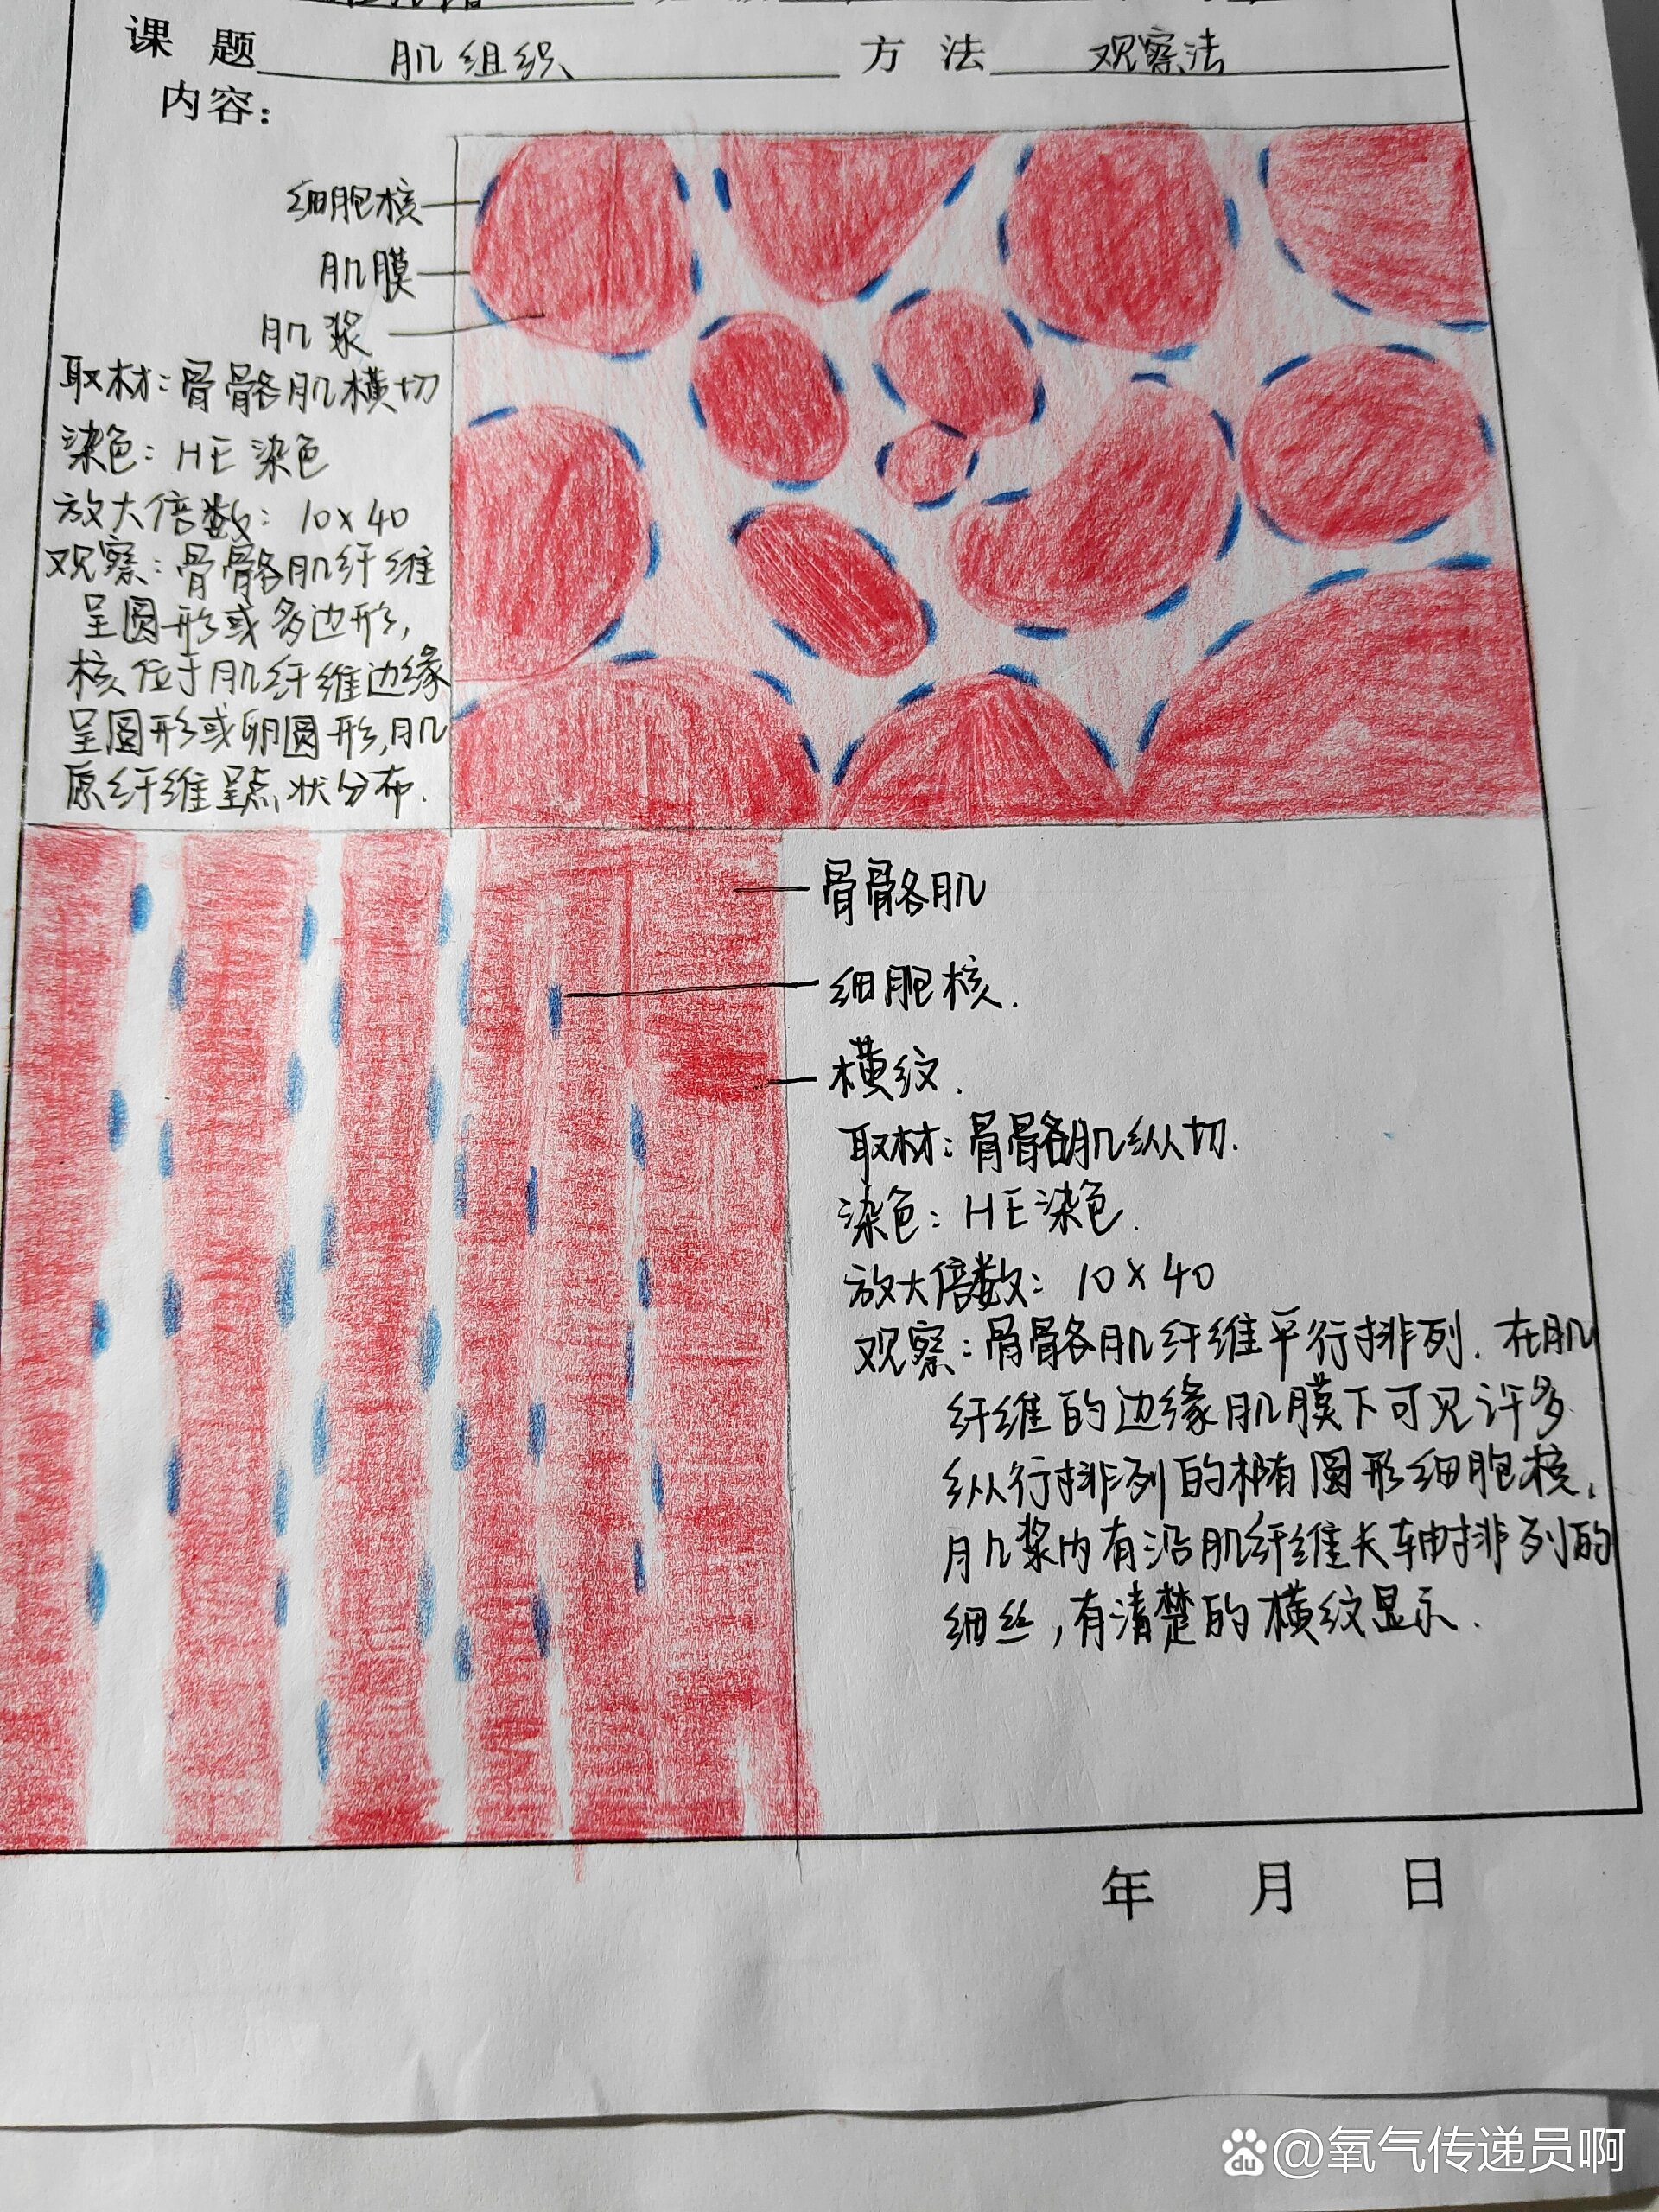 课 题 肌组织 方 法 观察法
内容：
细胞核
肌膜
肌浆
取材：骨骼肌横切
染色：HE染色
放大倍数：10×40
观察：骨骼肌纤维
呈圆形或多边形，
核位于肌纤维边缘
呈圆形或卵圆形，肌
原纤维呈点状分布.
骨骼肌
细胞核.
横纹.
取材：骨骼肌纵切.
染色：HE染色.
放大倍数：10×40
观察：骨骼肌纤维平行排列.在肌
纤维的边缘肌膜下可见许多
纵行排列的圆形细胞核，
肌浆内有沿肌纤维长轴排列的
细丝，有清楚的横纹显示.
年 月 日
du @氧气传递员啊